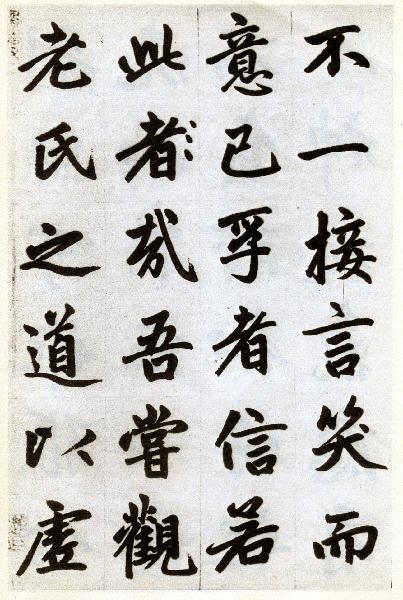 不一接言笑而
意已孚者信若
此者㢤吾嘗觀
老氏之道以虛